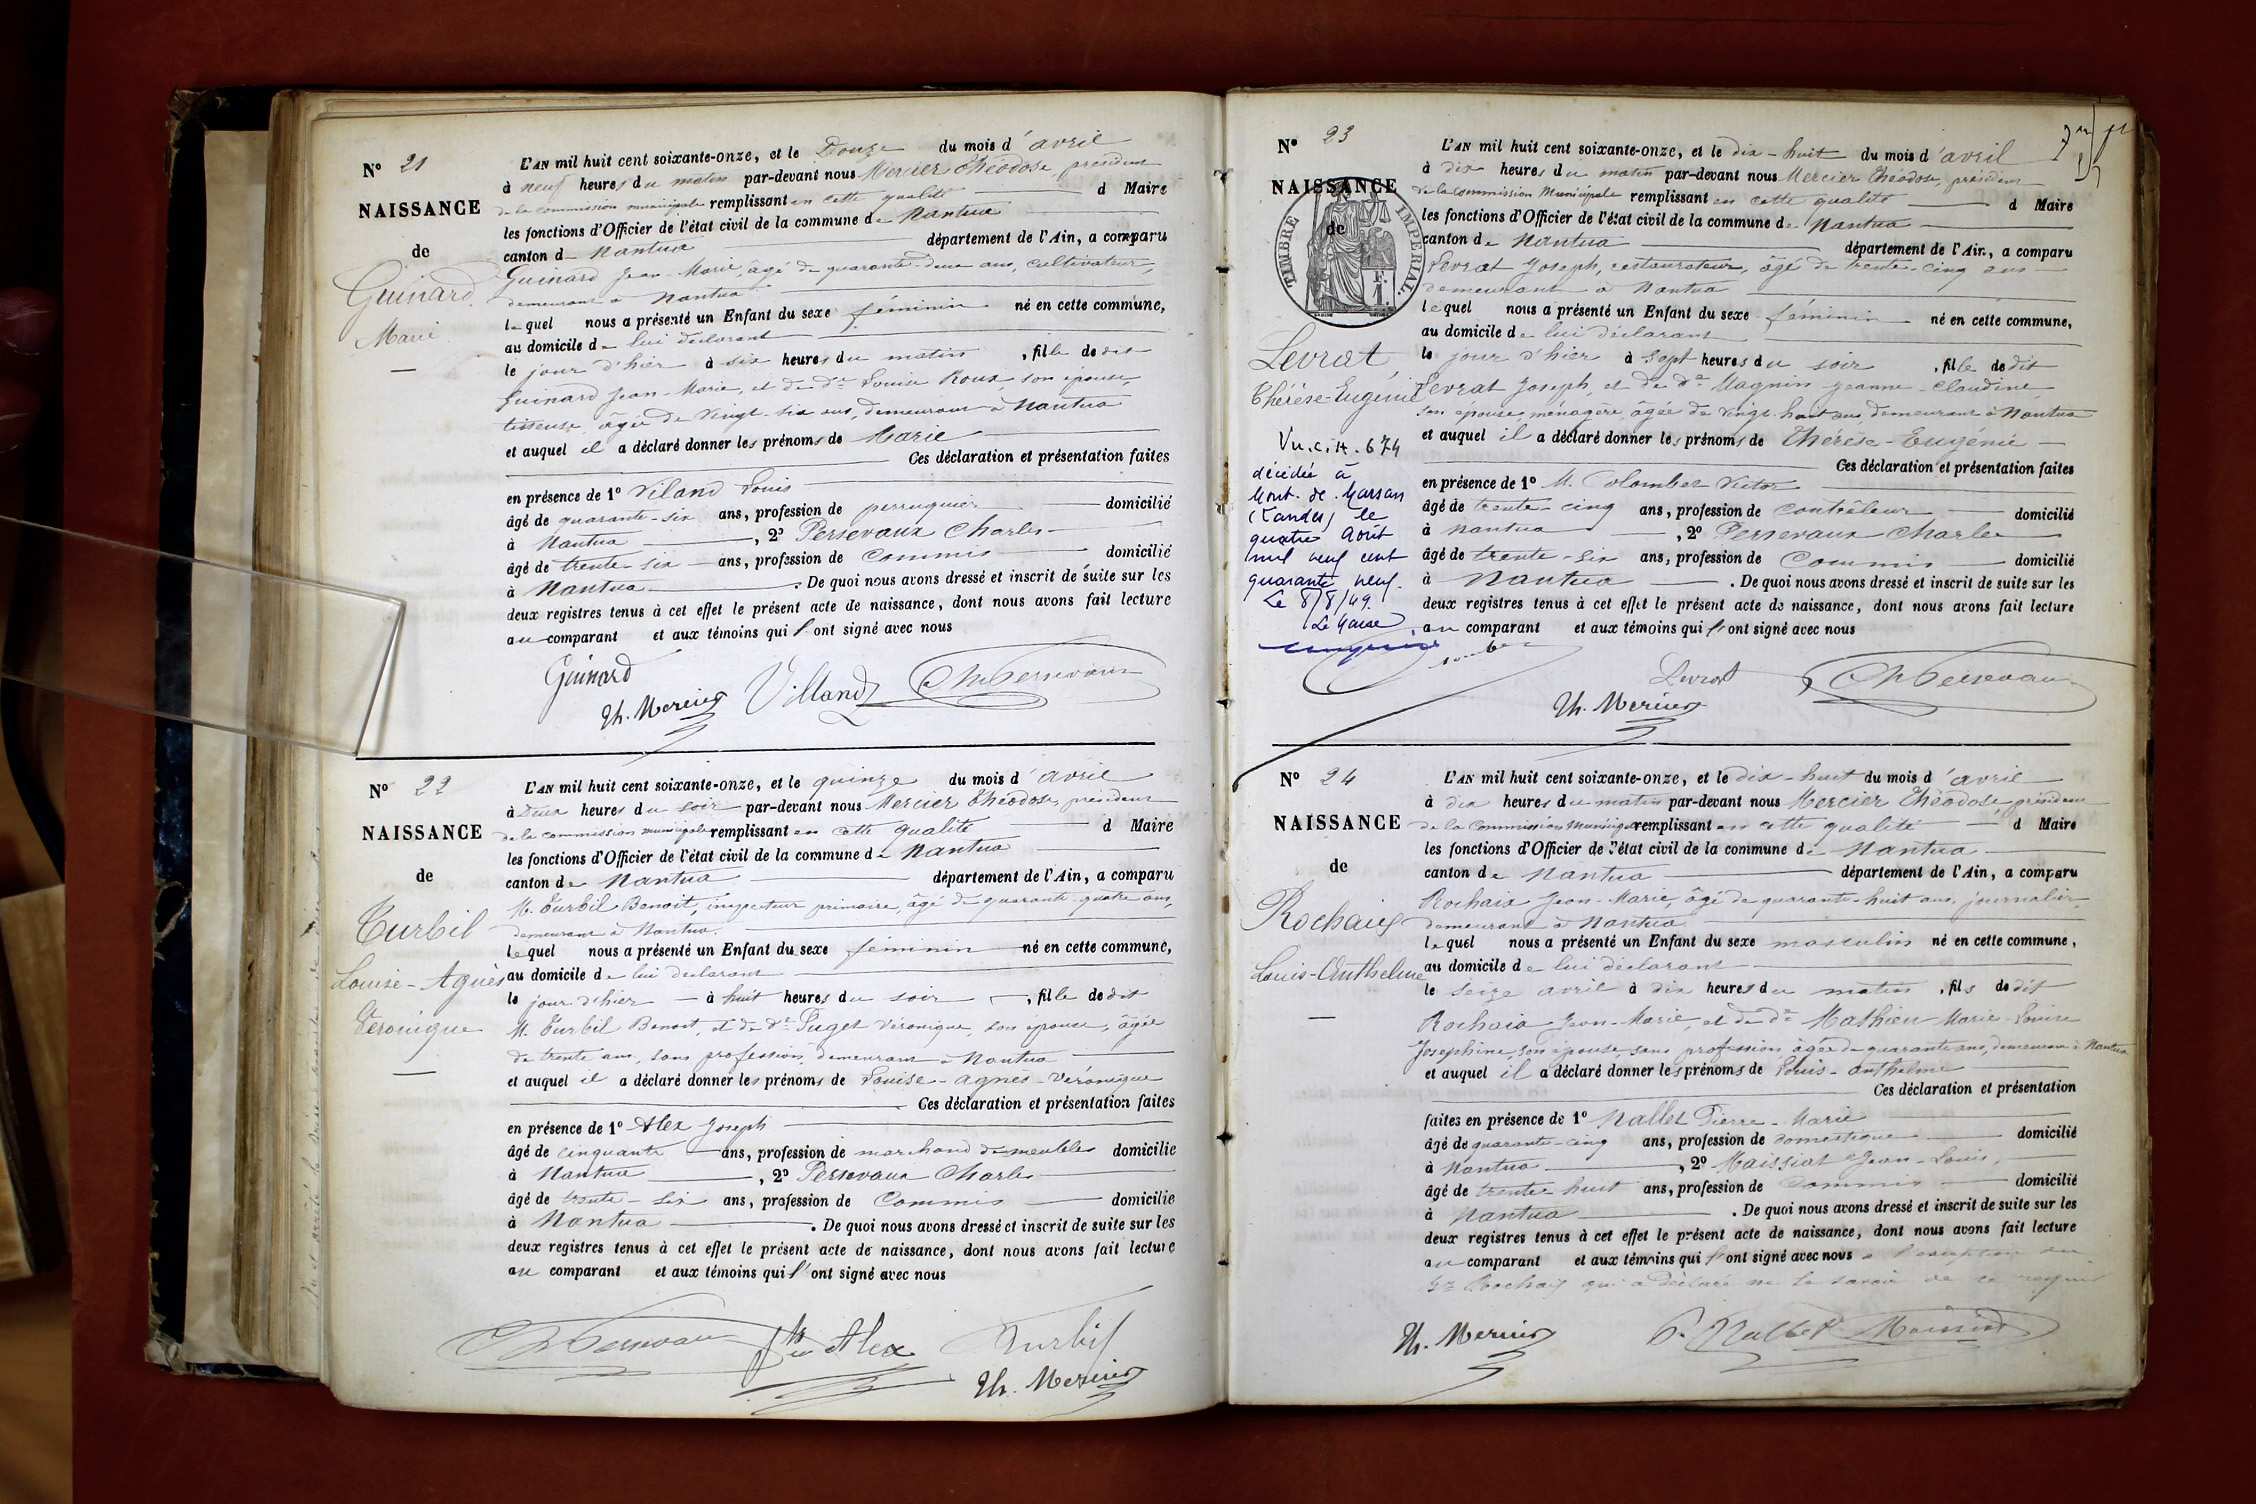 N° 21
NAISSANCE
de
Guinard
Marie
L'AN mil huit cent soixante-onze, et le Douze du mois d'avril
à neuf heures du matin par-devant nous Mercier Théodose, président
de la commission municipale remplissant en cette qualité d Maire
les fonctions d'Officier de l'état civil de la commune de Nantua
canton de Nantua département de l'Ain, a comparu
Guinard Jean-Marie, âgé de quarante-deux ans, cultivateur,
demeurant à Nantua
lequel nous a présenté un Enfant du sexe féminin né en cette commune,
au domicile de lui déclarant
le jour d'hier à six heures du matin, fille de dit
Guinard Jean-Marie, et de de Louise Roux, son épouse,
tisseuse, âgée de vingt-six ans, demeurant à Nantua
et auquel il a déclaré donner les prénoms de Marie
Ces déclaration et présentation faites
en présence de 1° Viland Louis
âgé de quarante-six ans, profession de perruquier domicilié
à Nantua, 2° Persevaux Charles
âgé de trente-six ans, profession de Commis domicilié
à Nantua. De quoi nous avons dressé et inscrit de suite sur les
deux registres tenus à cet effet le présent acte de naissance, dont nous avons fait lecture
au comparant et aux témoins qui l'ont signé avec nous
Guinard
Th. Mercier Villand Ch Persevaux
N° 22
NAISSANCE
de
Turbil
Louise-Agnès
Véronique
L'AN mil huit cent soixante-onze, et le quinze du mois d'avril
à Deux heures du soir par-devant nous Mercier Théodose, président
de la commission municipale remplissant en cette qualité d Maire
les fonctions d'Officier de l'état civil de la commune de Nantua
canton de Nantua département de l'Ain, a comparu
M. Turbil Benoit, inspecteur primaire, âgé de quarante-quatre ans,
demeurant à Nantua.
lequel nous a présenté un Enfant du sexe féminin né en cette commune,
au domicile de lui déclarant
le jour d'hier à huit heures du soir, fille de dit
M. Turbil Benoit, et de de Puget Véronique, son épouse, âgée
de trente ans, sans profession, demeurant à Nantua
et auquel il a déclaré donner les prénoms de Louise-Agnès-Véronique
Ces déclaration et présentation faites
en présence de 1° Alex Joseph
âgé de cinquante ans, profession de marchand de meubles domicilié
à Nantua, 2° Persevaux Charles
âgé de trente-six ans, profession de Commis domicilié
à Nantua. De quoi nous avons dressé et inscrit de suite sur les
deux registres tenus à cet effet le présent acte de naissance, dont nous avons fait lecture
au comparant et aux témoins qui l'ont signé avec nous
Ch Persevaux Alex Turbil
Th. Mercier
N° 23
NAISSANCE
de
TIMBRE IMPERIAL
F.
1.
Levrat,
Thérèse-Eugénie
Vu. C. H. 674
décédée à
Mont-de-Marsan
(Landes) le
quatre Août
mil neuf cent
quarante neuf.
Le 8/8/49.
Le Maire
L'AN mil huit cent soixante-onze, et le dix-huit du mois d'avril
à dix heures du matin par-devant nous Mercier Théodose, président
de la Commission Municipale remplissant en cette qualité d Maire
les fonctions d'Officier de l'état civil de la commune de Nantua
canton de Nantua département de l'Ain, a comparu
Levrat Joseph, restaurateur, âgé de trente-cinq ans
demeurant à Nantua
lequel nous a présenté un Enfant du sexe féminin né en cette commune,
au domicile de lui déclarant
le jour d'hier à sept heures du soir, fille de dit
Levrat Joseph, et de de Magnin Jeanne-Claudine
son épouse, ménagère, âgée de vingt-huit ans, demeurant à Nantua
et auquel il a déclaré donner les prénoms de Thérèse-Eugénie
Ces déclaration et présentation faites
en présence de 1° M. Colombet Victor
âgé de trente-cinq ans, profession de contrôleur domicilié
à Nantua, 2° Persevaux Charles
âgé de trente-six ans, profession de Commis domicilié
à Nantua. De quoi nous avons dressé et inscrit de suite sur les
deux registres tenus à cet effet le présent acte de naissance, dont nous avons fait lecture
au comparant et aux témoins qui l'ont signé avec nous
Levrat Ch Persevaux
Th. Mercier
N° 24
NAISSANCE
de
Rochaix
Louis-Anthelme
L'AN mil huit cent soixante-onze, et le dix-huit du mois d'avril
à dix heures du matin par-devant nous Mercier Théodose président
de la Commission Municipale remplissant en cette qualité d Maire
les fonctions d'Officier de l'état civil de la commune de Nantua
canton de Nantua département de l'Ain, a comparu
Rochaix Jean-Marie, âgé de quarante-huit ans, journalier,
demeurant à Nantua
lequel nous a présenté un Enfant du sexe masculin né en cette commune,
au domicile de lui déclarant
le seize avril à dix heures du matin, fils de dit
Rochaix Jean-Marie, et de de Mathieu Marie-Louise
Josephine, son épouse, sans profession, âgée de quarante ans, demeurant à Nantua
et auquel il a déclaré donner les prénoms de Louis-Anthelme
Ces déclaration et présentation
faites en présence de 1° Nallet Pierre-Marie
âgé de quarante-cinq ans, profession de domestique domicilié
à Nantua, 2° Maissiat Jean-Louis,
âgé de trente-huit ans, profession de Commis domicilié
à Nantua. De quoi nous avons dressé et inscrit de suite sur les
deux registres tenus à cet effet le présent acte de naissance, dont nous avons fait lecture
au comparant et aux témoins qui l'ont signé avec nous à l'exception du
Sr Rochaix qui a déclaré ne le savoir de ce requis
Th. Mercier P. Nallet Maissiat